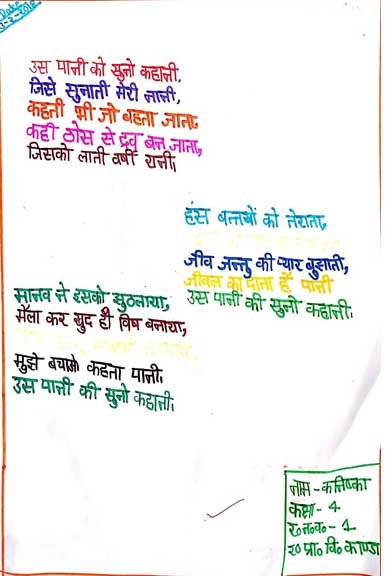 Date
उस पानी को सुनो कहानी,
जिसे सुनाती मेरी नानी,
कहती भी जो बहता जाता,
कही ठोस से द्रव बन जाता,
जिसको लाती वर्षा रानी।
हंस बत्तखों को तैराता,
जीव जन्तु की प्यार बुझाती,
जीवन का दाता है पानी
उस पानी की सुनो कहानी।
मानव ने इसको झुठलाया,
मैला कर खुद ही विष बनाया,
मुझे बचाओ कहता पानी।
उस पानी की सुनो कहानी।
नाम - कनिष्का
कक्षा - 4
र०न०व० - 1
रा० प्रा० वि० काण्डा